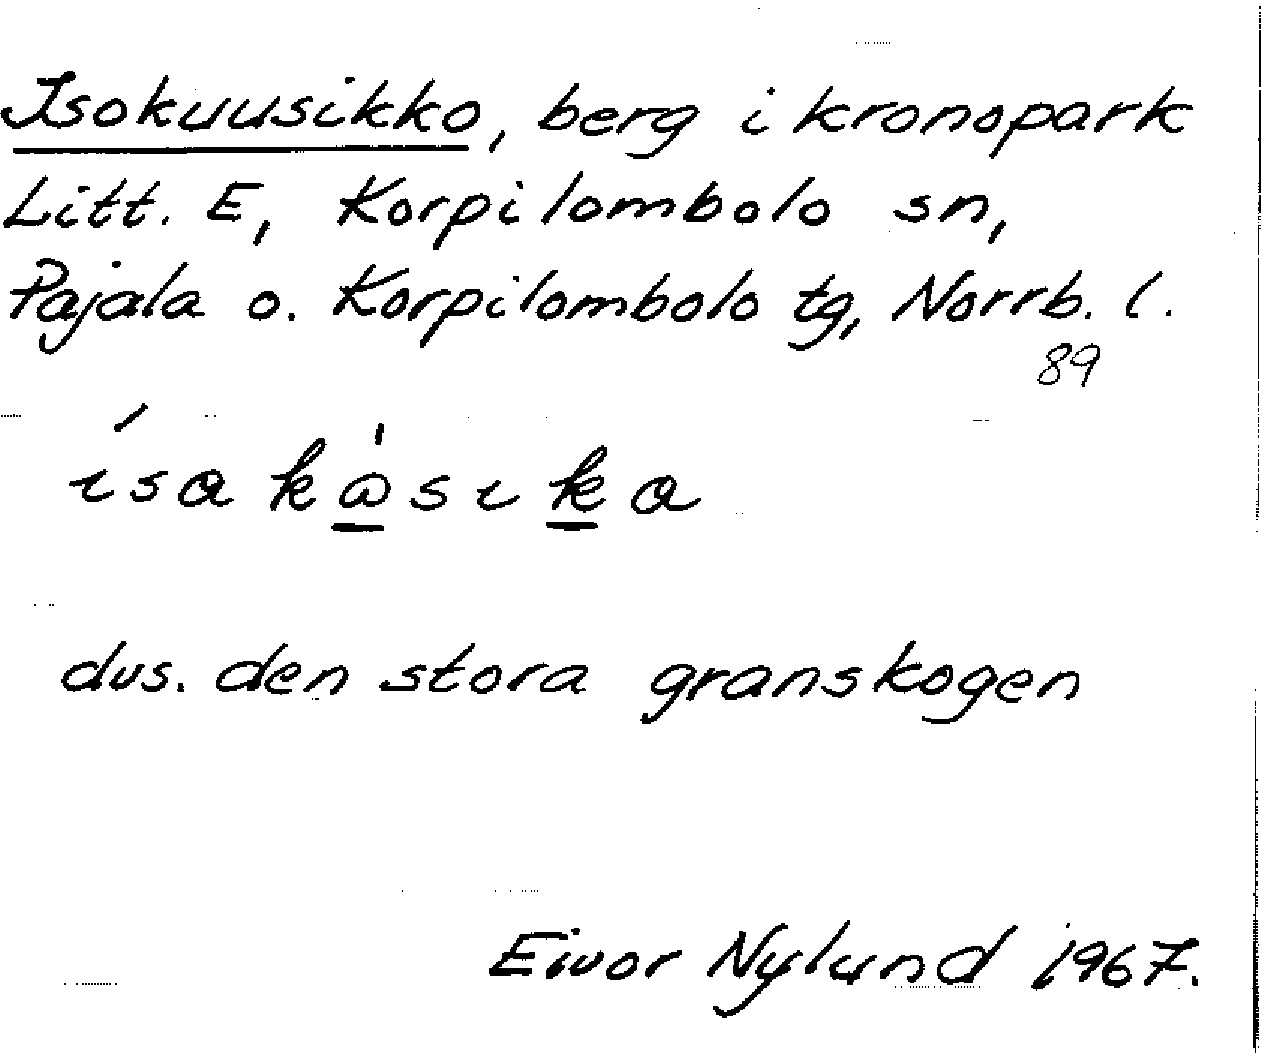 Isokuusikko, berg i kronopark
Litt. E, Korpilombolo sn,
Pajala o. Korpilombolo tg, Norrb. l.
89
dvs. den stora granskogen
Eivor Nylund 1967.